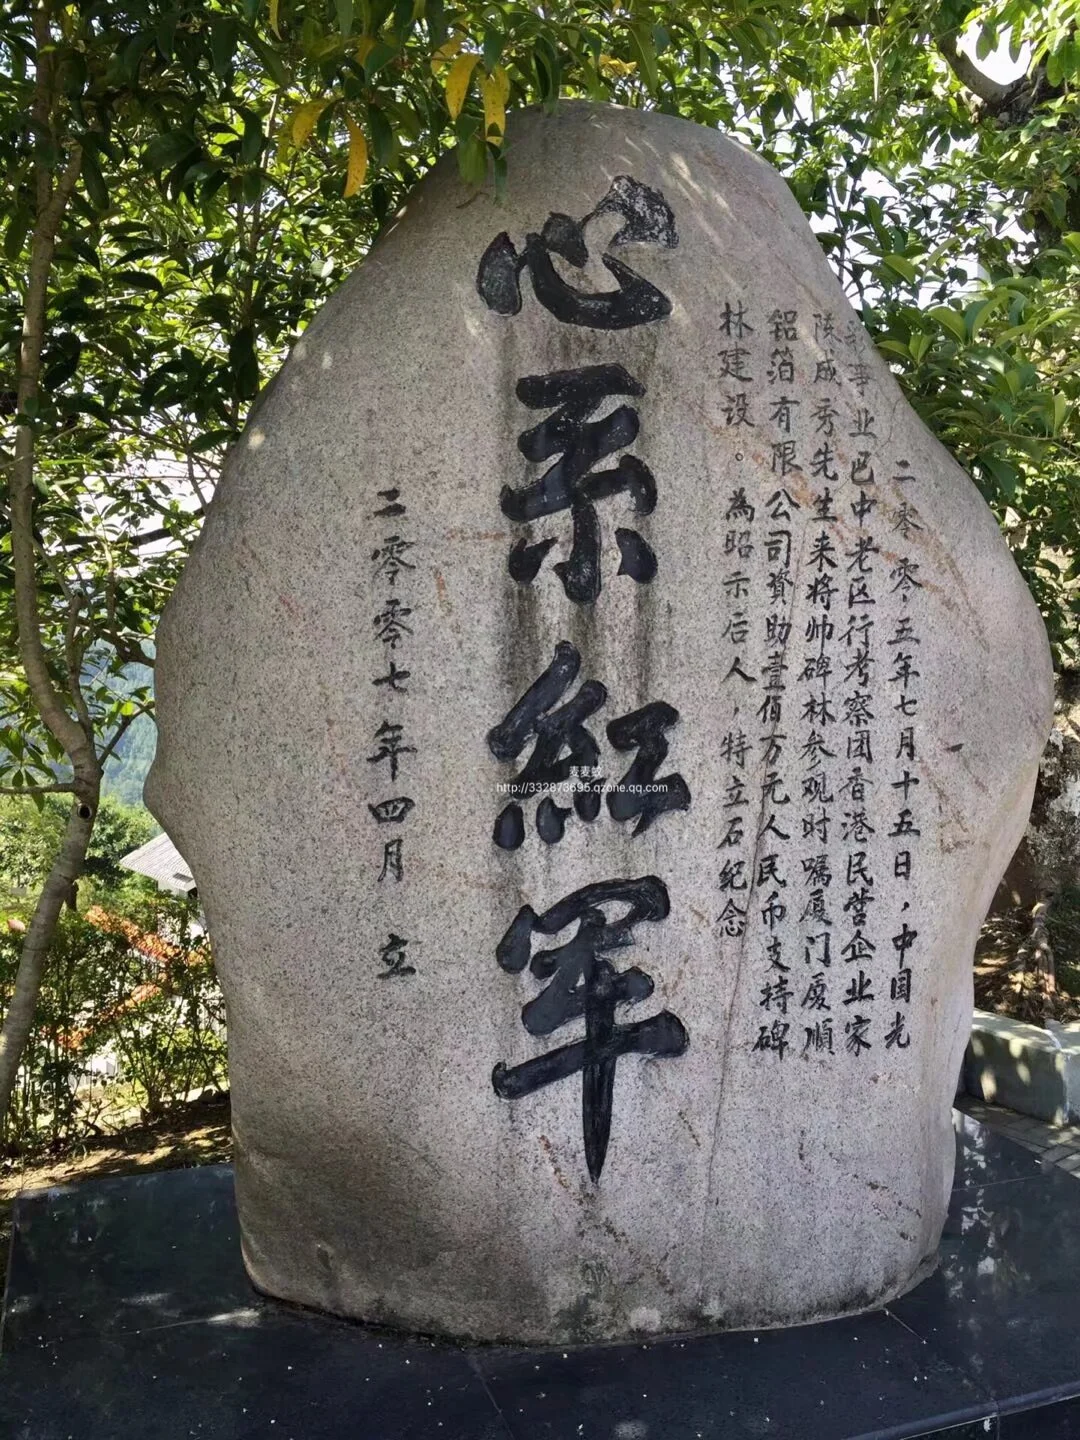 二零零五年七月十五日，中国光
彩事业巴中老区行考察团香港民营企业家
陈成秀先生来将帅碑林参观时嘱厦门厦順
铝箔有限公司資助壹佰万元人民币支持碑
林建设。為昭示后人，特立石纪念
心系紅军
二零零七年四月 立
麦麦蚊
http://332873695.qzone.qq.com